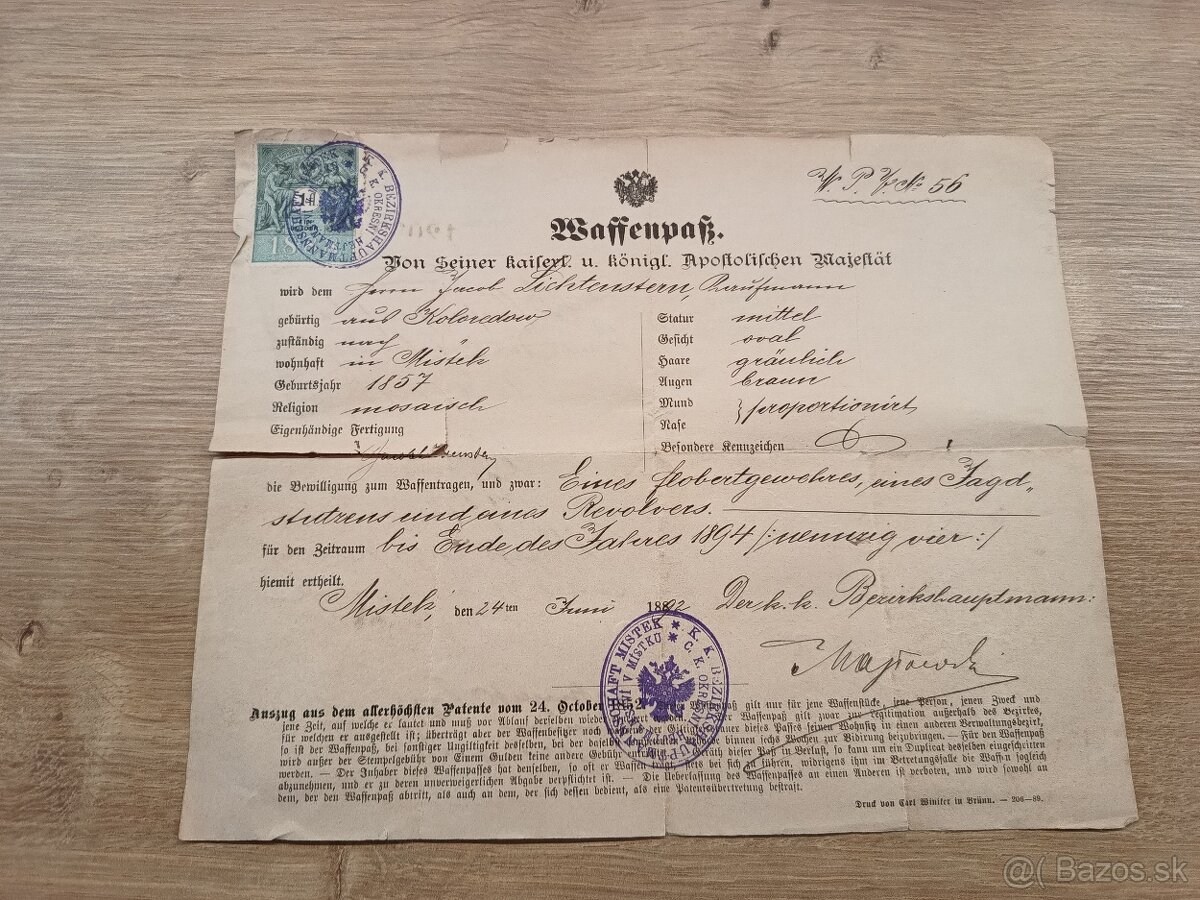 W. P. Z. No 56
Waffenpaß.
Von Seiner kaiserl. u. königl. Apostolischen Majestät
wird dem Herrn Jacob Lichtenstern, Kaufmann
gebürtig aus Koloredow
zuständig nach
wohnhaft in Mistek
Geburtsjahr 1857
Religion mosaisch
Eigenhändige Fertigung
Statur mittel
Gesicht oval
Haare gräulich
Augen braun
Mund } proportionirt
Nase
Besondere Kennzeichen
die Bewilligung zum Waffentragen, und zwar: Eines Flobertgewehres, eines Jagd„
stutzens und eines Revolvers.
für den Zeitraum bis Ende des Jahres 1894 /: neunzig vier :/
hiemit ertheilt.
Mistek, den 24ten Juni 1892 Der k. k. Bezirkshauptmann:
K. K. BEZIRKSHAUPTMANNSCHAFT MISTEK
C. K. OKRESNÍ HEJTMANSTVÍ V MÍSTKU
Auszug aus dem allerhöchsten Patente vom 24. October 1852. Waffenpaß gilt nur für jene Waffenstücke, jene Person, jenen Zweck und
jene Zeit, auf welche er lautet und muß vor Ablauf derselben Waffenpaß gilt zwar zur Legitimation außerhalb des Bezirkes,
für welchen er ausgestellt ist; überträgt aber der Waffenbesitzer noch der dieses Passes seinen Wohnsitz in einen anderen Verwaltungsbezirk,
so ist der Waffenpaß, bei sonstiger Ungiltigkeit desselben, bei der binnen sechs Wochen zur Vidirung beizubringen. — Für den Waffenpaß
wird außer der Stempelgebühr von Einem Gulden keine andere Gebühr Geräth dieser Paß in Verlust, so kann um ein Duplicat desselben eingeschritten
werden. — Der Inhaber dieses Waffenpasses hat denselben, so oft er Waffen trägt, stets bei sich zu führen, widrigens ihm im Betretungsfalle die Waffen sogleich
abzunehmen, und er zu deren unverweigerlichen Abgabe verpflichtet ist. — Die Ueberlassung des Waffenpasses an einen Anderen ist verboten, und wird sowohl an
dem, der den Waffenpaß abtritt, als auch an dem, der sich dessen bedient, als eine Patentsübertretung bestraft.
Druck von Carl Winiker in Brünn. — 206—89.
@( Bazos.sk